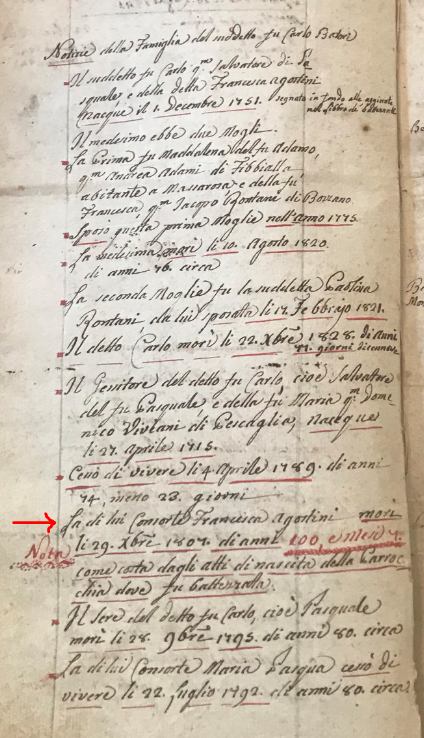 Notizie della Famiglia del suddetto fu Carlo Batori
Il suddetto fu Carlo qm Salvatore di Pa
squale, e della Francesca Agostini
nacque il 1. Decembre 1751. segnato in fondo alle aggiunte
nel Libro de battezzati
Il medesimo ebbe due Mogli
La Prima fu Maddalena del fu Adamo,
qm Andrea Adami di Fibbialla
abitante a Massarosa e della fu
Francesca qm Jacopo Bontani di Bozzano
Sposò questa prima Moglie nell'anno 1775.
La medesima morì li 10. Agosto 1820.
di anni 76. circa
La seconda Moglie fu la suddetta
Bontani, da lui sposata li 17. Febbrajo 1821.
Il detto Carlo morì li 22. Xbre 1828. di anni
77. giorni
Il Genitore del detto fu Carlo, cioè Salvatore
del fu Pasquale, e della fu Maria qm Dome
nico Viviani di Pescaglia, nacque
li 27. Aprile 1715.
Cessò di vivere li 4 Aprile 1789. di anni
74, meno 23. giorni
La di lui Consorte Francesca Agostini morì
li 29. Xbre 1807. di anni 100, e mesi 7.
Nota
come costa dagli atti di nascita della Parroc
chia dove fu battezzata.
Il Sere del detto fu Carlo, cioè Pasquale
morì li 28. 9bre 1795. di anni 80. circa
La di lui Consorte Maria Pasqua cessò di
vivere li 22. Luglio 1792. di anni 80. circa